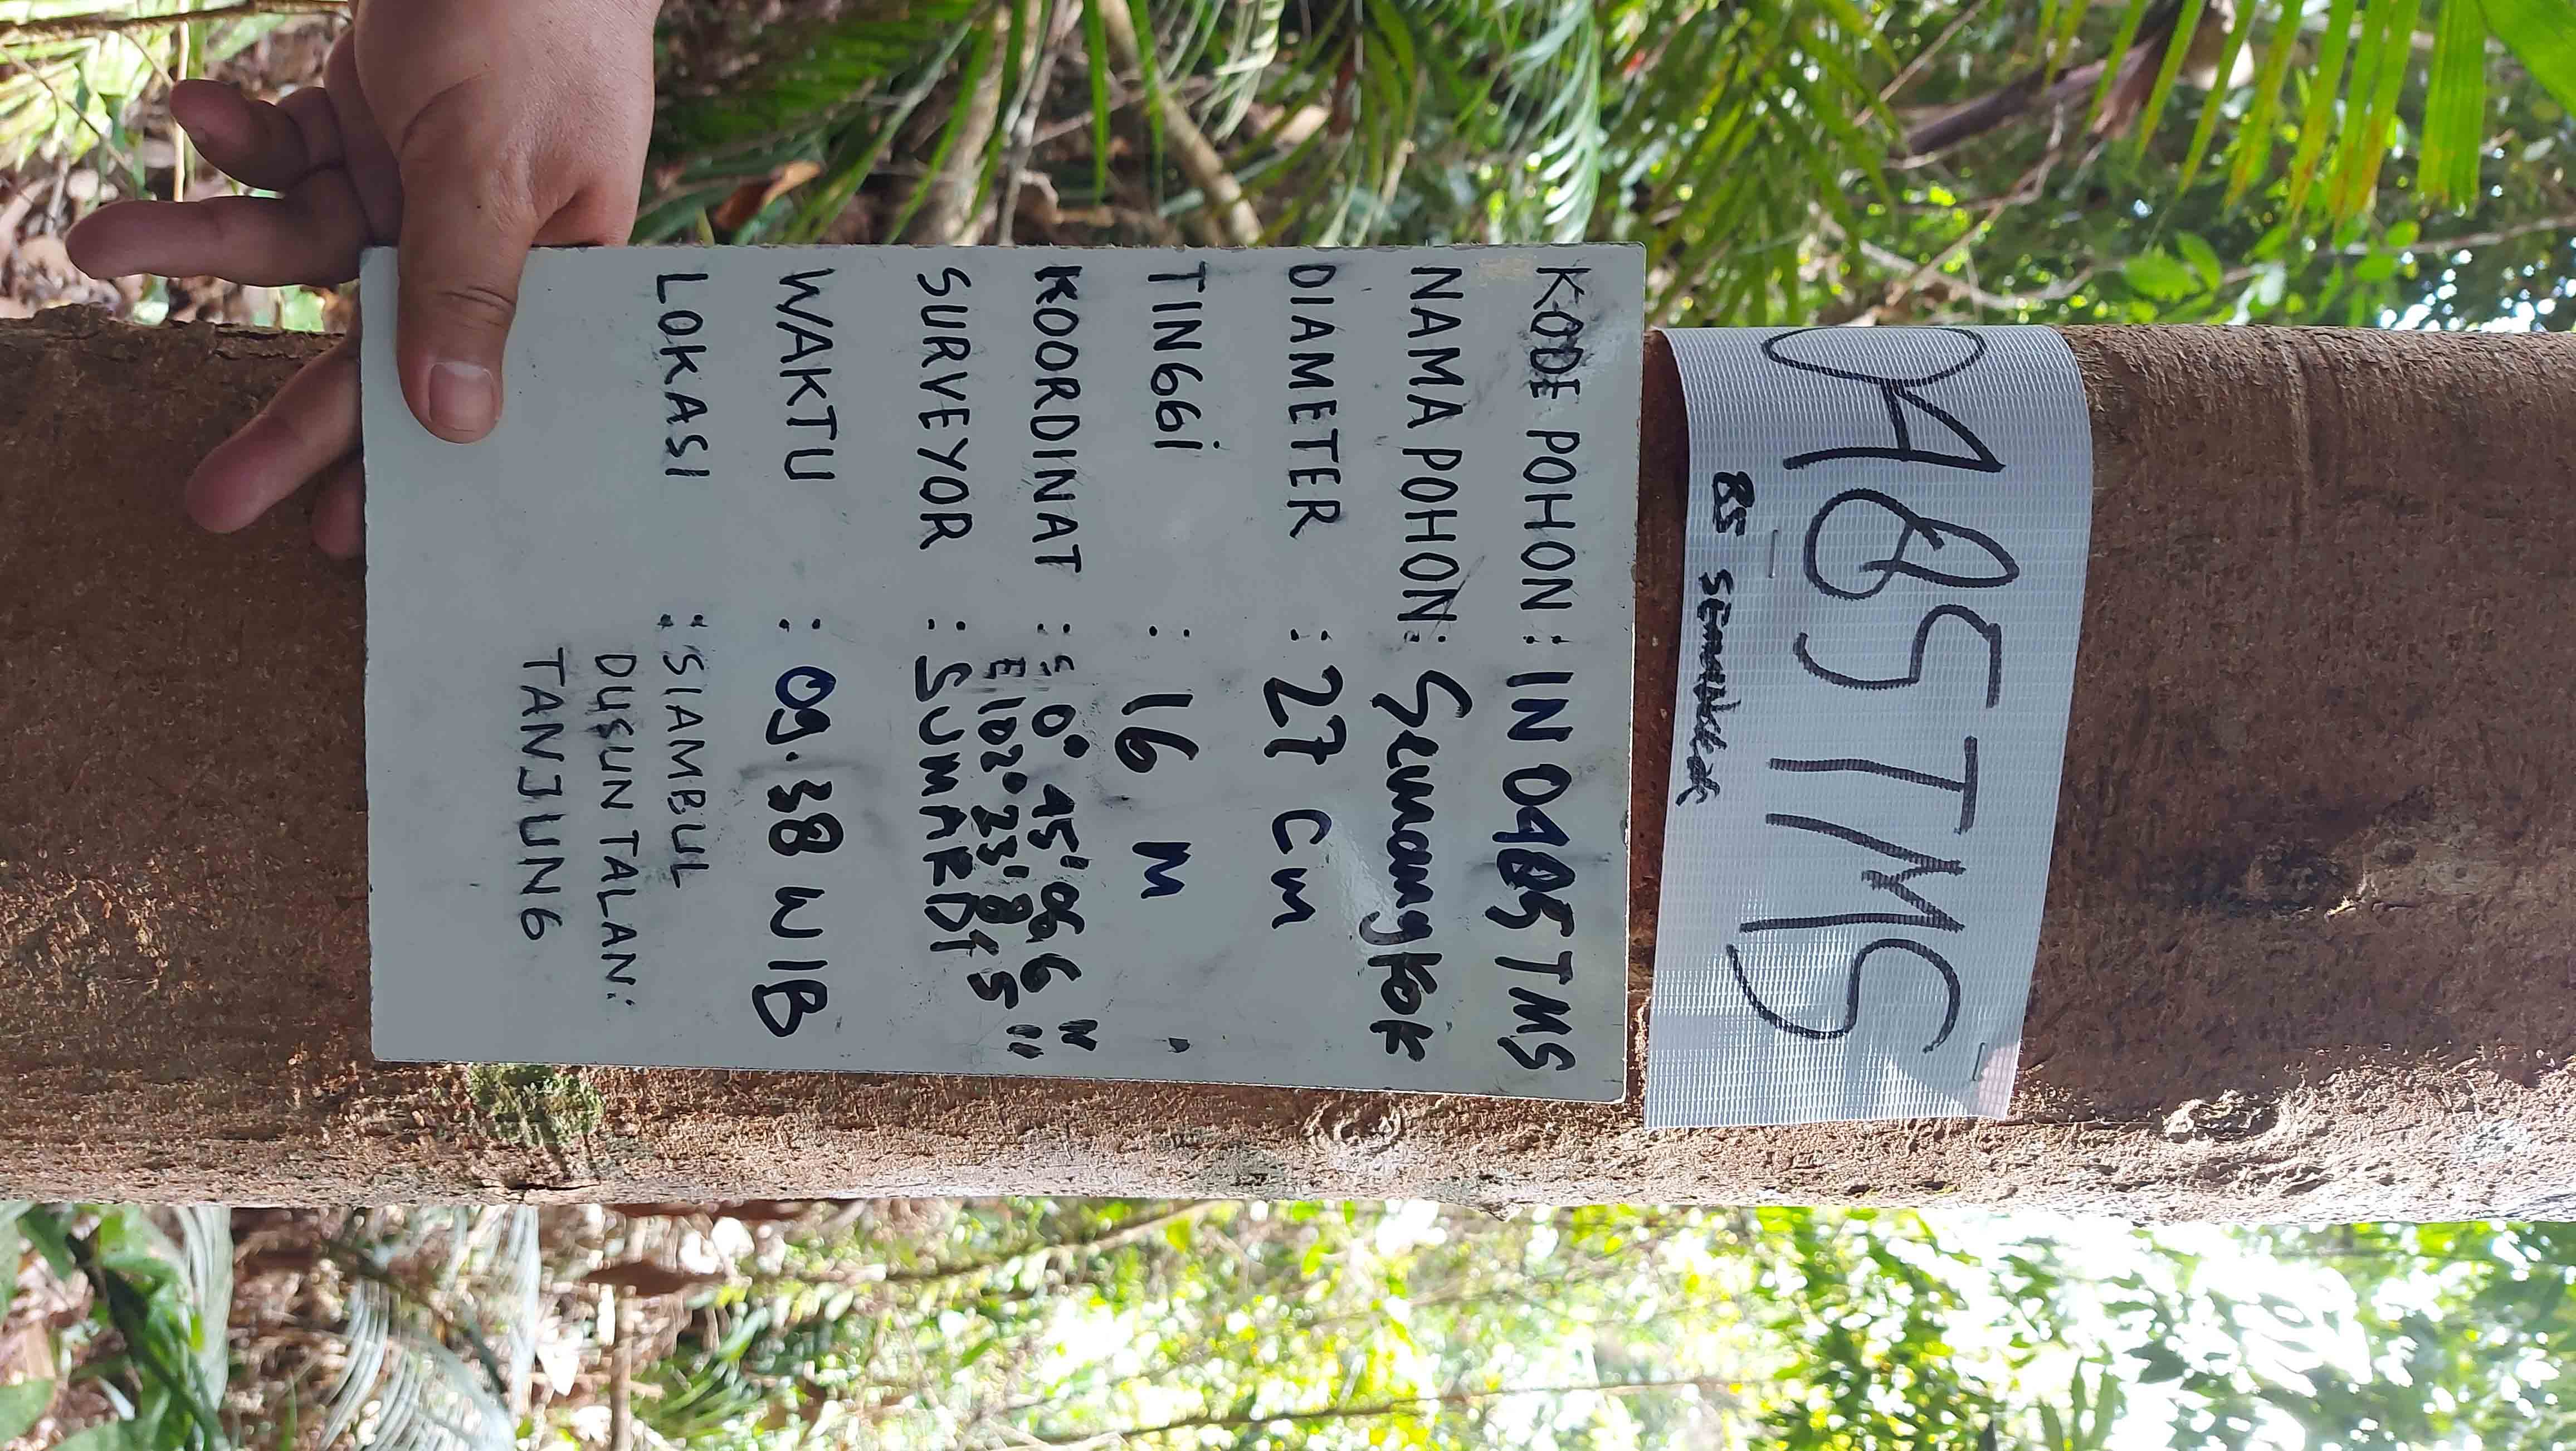 0485TMS
85 SEMANGKOK
KODE POHON : IN 0485 TMS
NAMA POHON : Semangkok
DIAMETER : 27 cm
TINGGI : 16 M
KOORDINAT : S 0° 45' 06,6 "
E 102° 23' 8,5 "
SURVEYOR : SUMARDI
WAKTU : 09.38 WIB
LOKASI : SIAMBUL
DUSUN TALAN:
TANJUNG